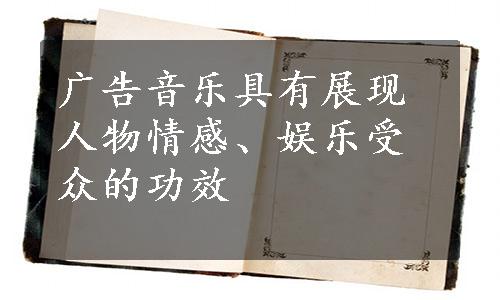 广告音乐具有展现
人物情感、娱乐受
众的功效